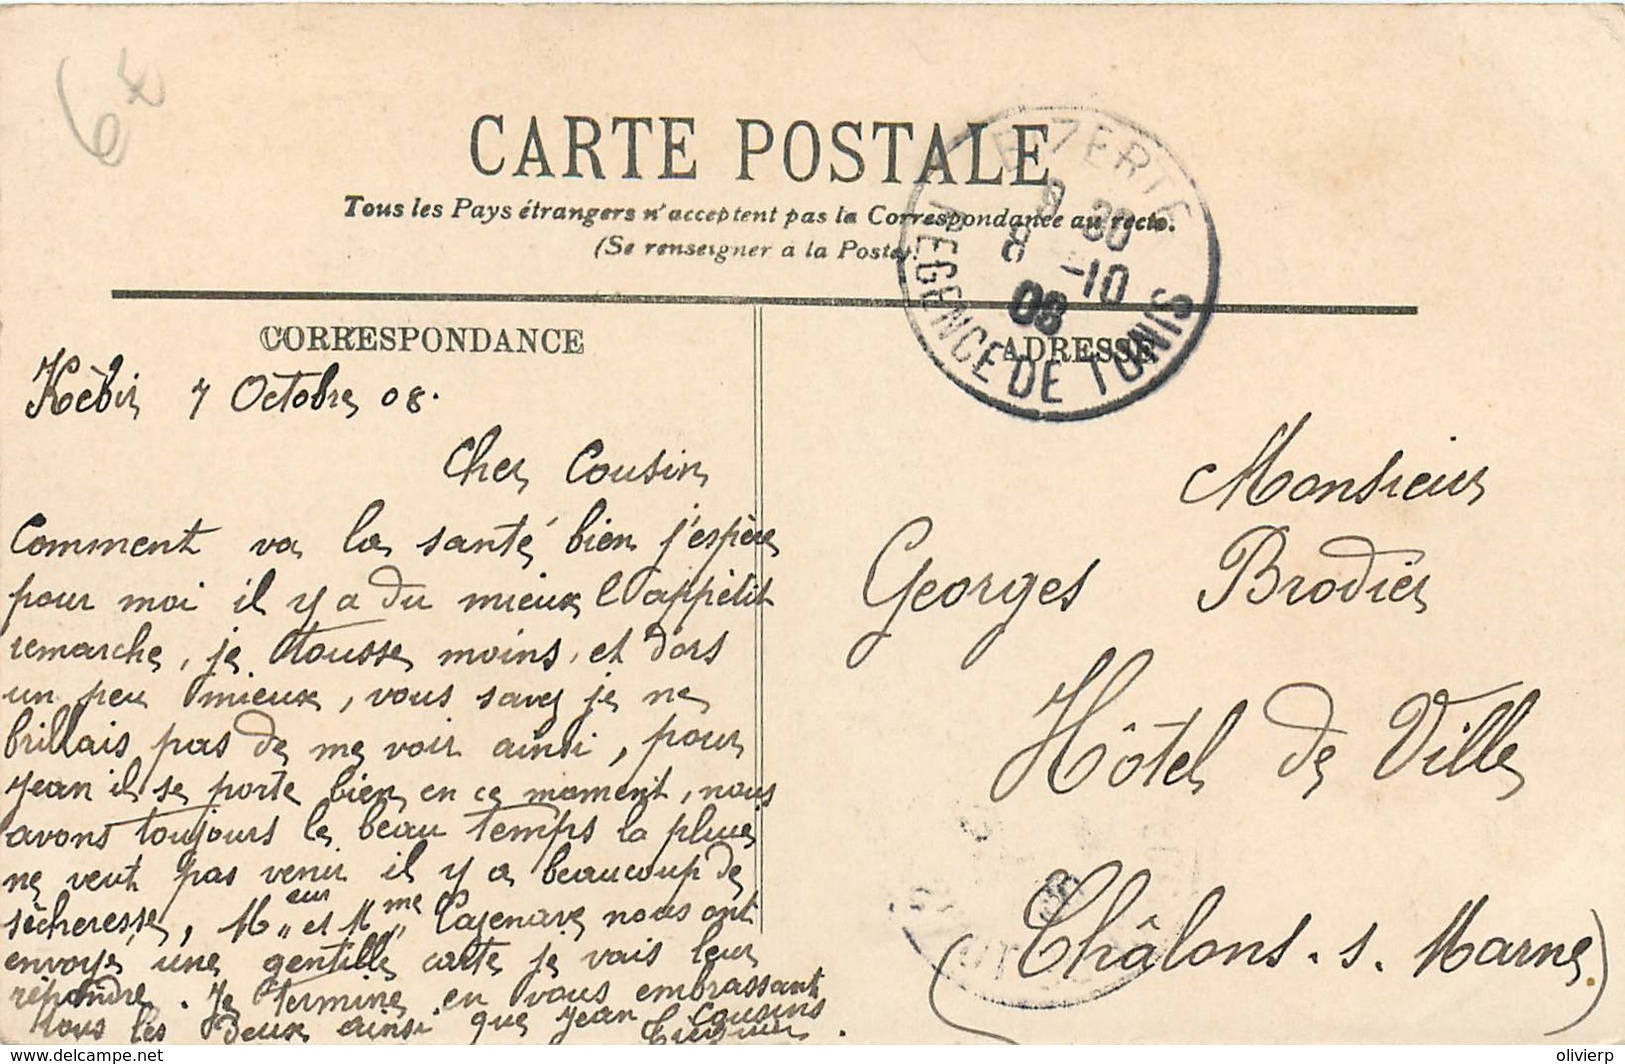 6
CARTE POSTALE
Tous les Pays étrangers n'acceptent pas la Correspondance au recto.
(Se renseigner à la Poste)
BIZERTE
9 30
8 -10
08
REGENCE DE TUNIS
CORRESPONDANCE
ADRESSE
Kèbir 7 Octobre 08.
Cher Cousin
Comment va la santé bien j'espère
pour moi il y a du mieux l'appétit
remarche, je tousse moins, et dors
un peu mieux, vous savez je ne
brillais pas de me voir ainsi, pour
Jean il se porte bien en ce moment, nous
avons toujours le beau temps la pluie
ne veut pas venir il y a beaucoup de
sècheresse, Meur et Mme Cazenave nous ont
envoyé une gentille carte je vais leur
répondre. Je termine en vous embrassant
tous les deux ainsi que Jean Cousins
Monsieur
Georges Brodier
Hôtel de Ville
Châlons. s. Marne
(    )
delcampe.net
olivierp